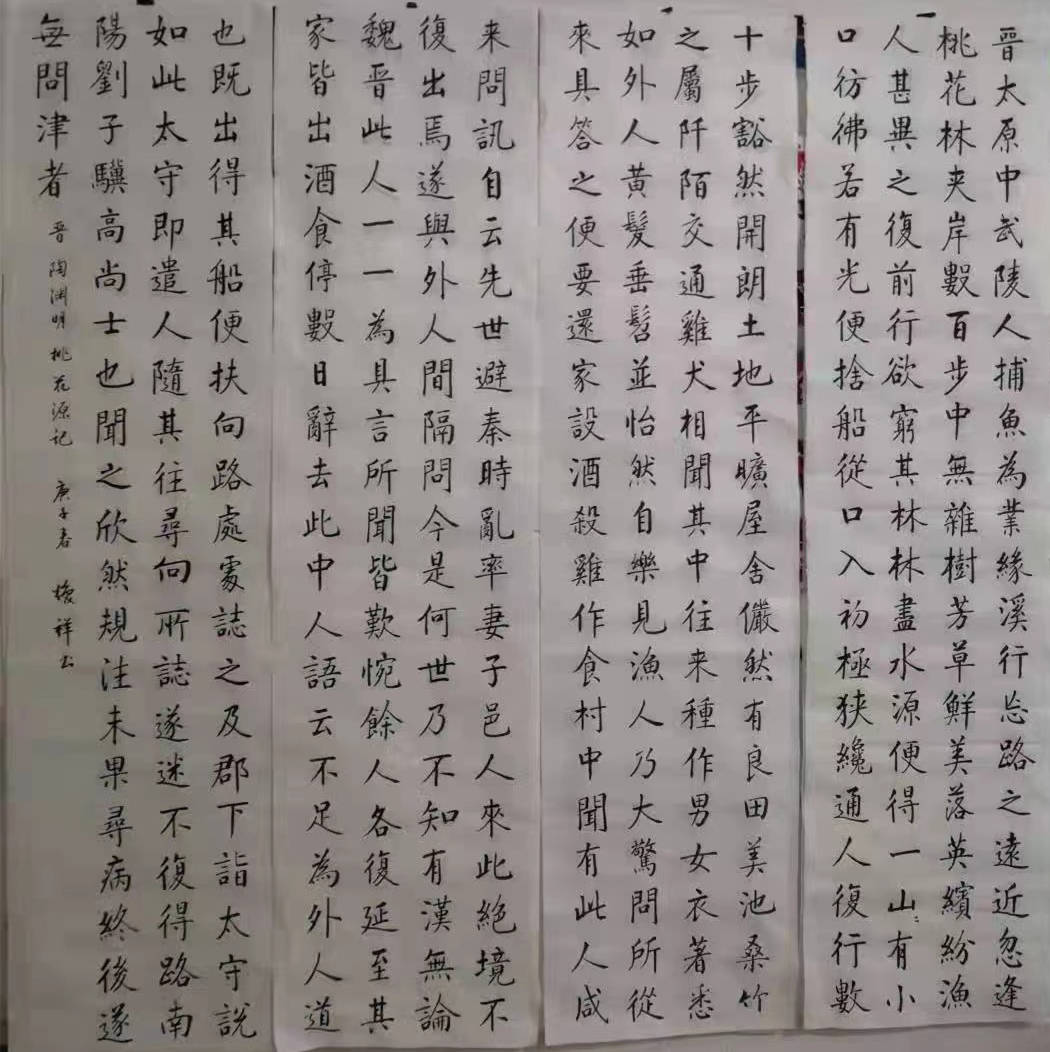 晉太原中武陵人捕魚為業緣溪行忘路之遠近忽逢
桃花林夾岸數百步中無雜樹芳草鮮美落英繽紛漁
人甚異之復前行欲窮其林林盡水源便得一山〻有小
口彷彿若有光便捨船從口入初極狹纔通人復行數
十步豁然開朗土地平曠屋舍儼然有良田美池桑竹
之屬阡陌交通雞犬相聞其中往来種作男女衣著悉
如外人黃髮垂髫並怡然自樂見漁人乃大驚問所從
來具答之便要還家設酒殺雞作食村中聞有此人咸
来問訊自云先世避秦時亂率妻子邑人來此絕境不
復出焉遂與外人間隔問今是何世乃不知有漢無論
魏晋此人一一為具言所聞皆歎惋餘人各復延至其
家皆出酒食停數日辭去此中人語云不足為外人道
也既出得其船便扶向路處處誌之及郡下詣太守說
如此太守即遣人隨其往尋向所誌遂迷不復得路南
陽劉子驥高尚士也聞之欣然規往未果尋病終後遂
無問津者 晋陶渊明桃花源记 庚子春 祥书